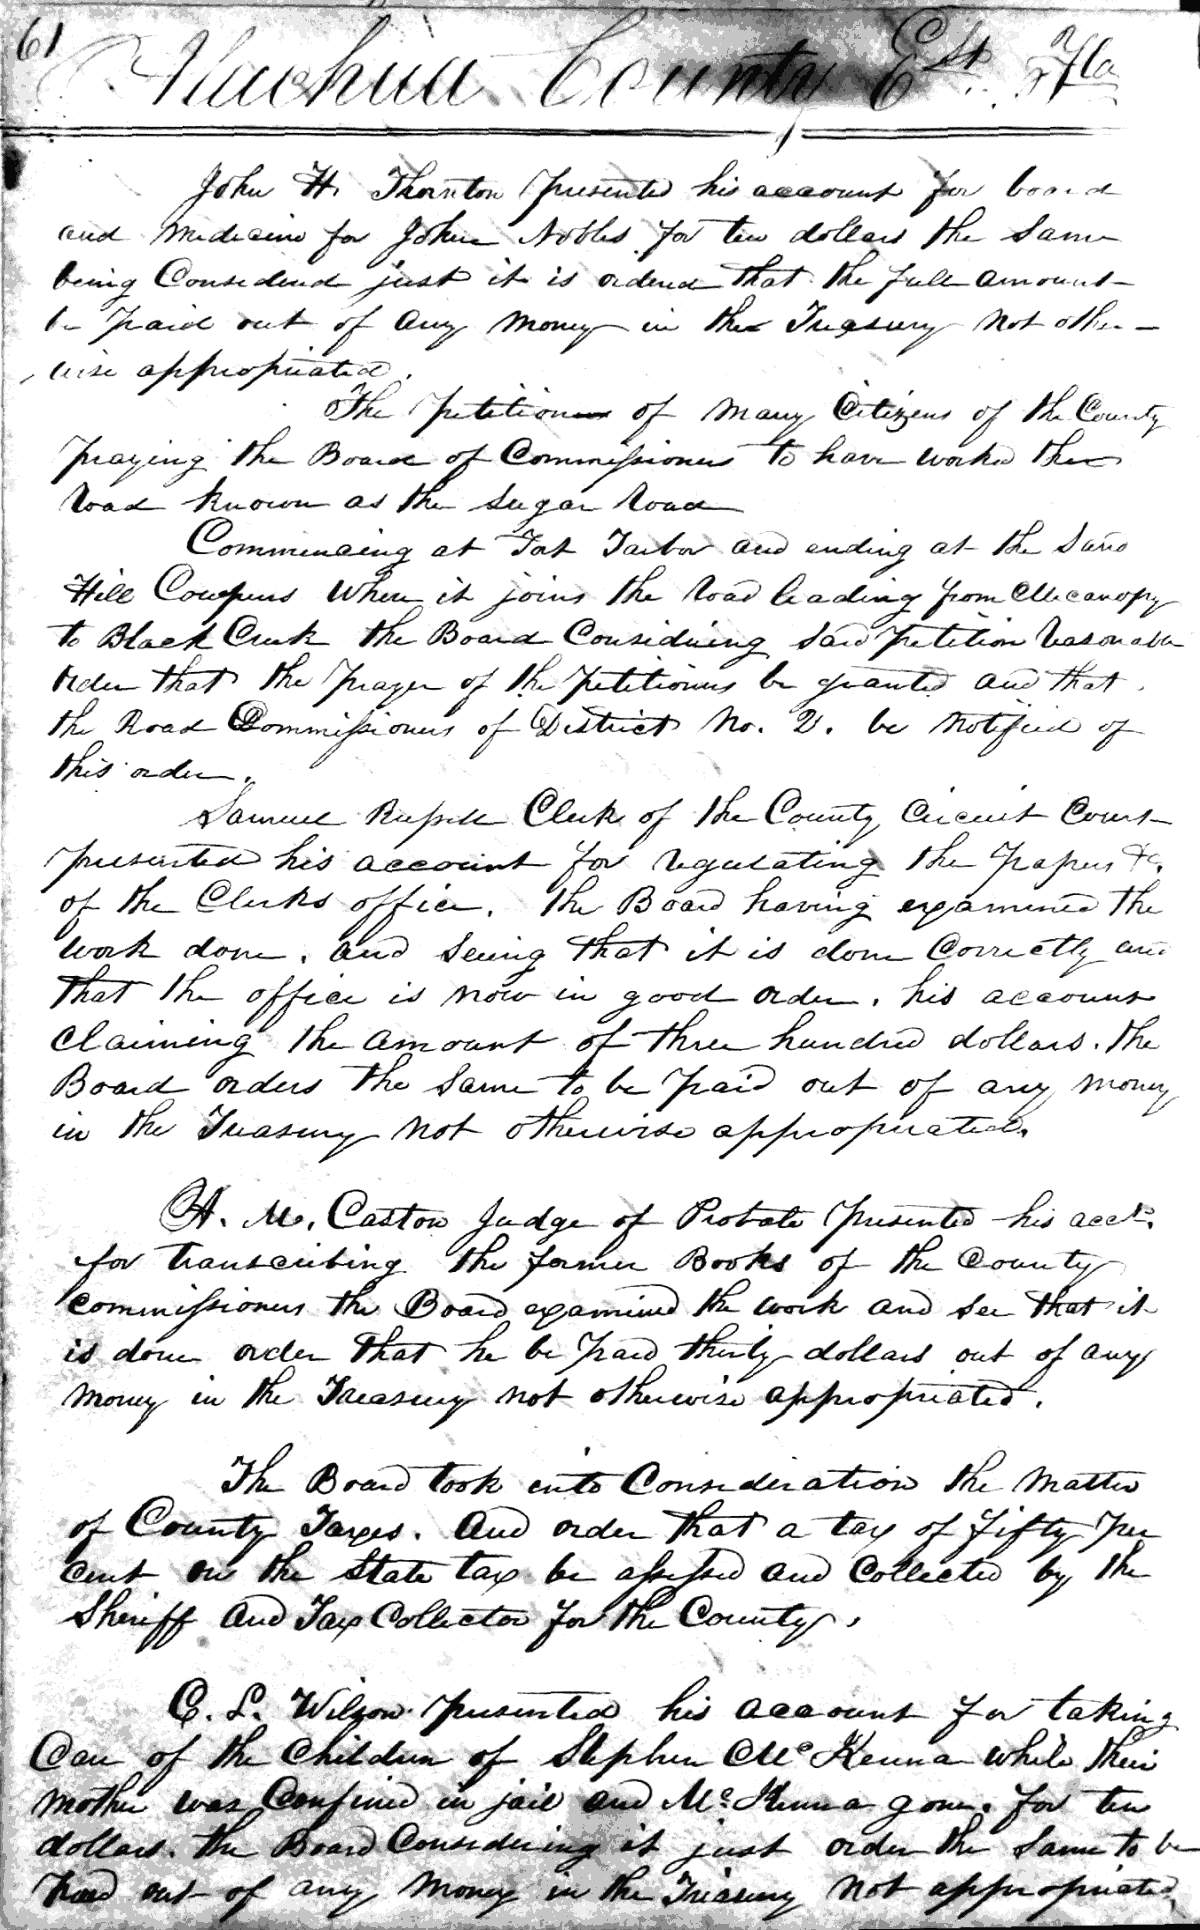 61
Alachua County Est. Fla
John H. Thornton presented his account for board
and medicine for John Nobles for ten dollars the same
being Considered just it is ordered that the full amount
be paid out of any money in the Treasury not other-
wise appropriated.
The petition of many Citizens of the County
praying the Board of Commissioners to have worked the
road known as the Sugar road
Commencing at Fort Tarbor and ending at the Sand
Hill Cowpens where it joins the road leading from Micanopy
to Black Creek the Board Considering said petition reasonable
order that the prayer of the petitioners be granted and that
the Road Commissioners of District No. 2. be notified of
this order.
Samuel Russell Clerk of the County Circuit Court
presented his account for regulating the papers &c.
of the Clerks office. the Board having examined the
work done. and seeing that it is done Correctly and
that the office is now in good order. his account
claiming the amount of three hundred dollars. the
Board orders the same to be paid out of any money
in the Treasury not otherwise appropriated.
H. M. Caston Judge of Probate presented his acct.
for transcribing the former Books of the County
commissioners the Board examined the work and see that it
is done order that he be paid thirty dollars out of any
money in the Treasury not otherwise appropriated.
The Board took into Consideration the matter
of County Taxes. And order that a tax of fifty per
cent on the State tax be assessed and Collected by the
Sheriff and Tax Collector for the County.
C. L. Wilson presented his account for taking
Care of the Children of Stephen McKenna while their
mother was Confined in jail and McKenna gone. for ten
dollars. the Board Considering it just order the same to be
paid out of any money in the Treasury not appropriated